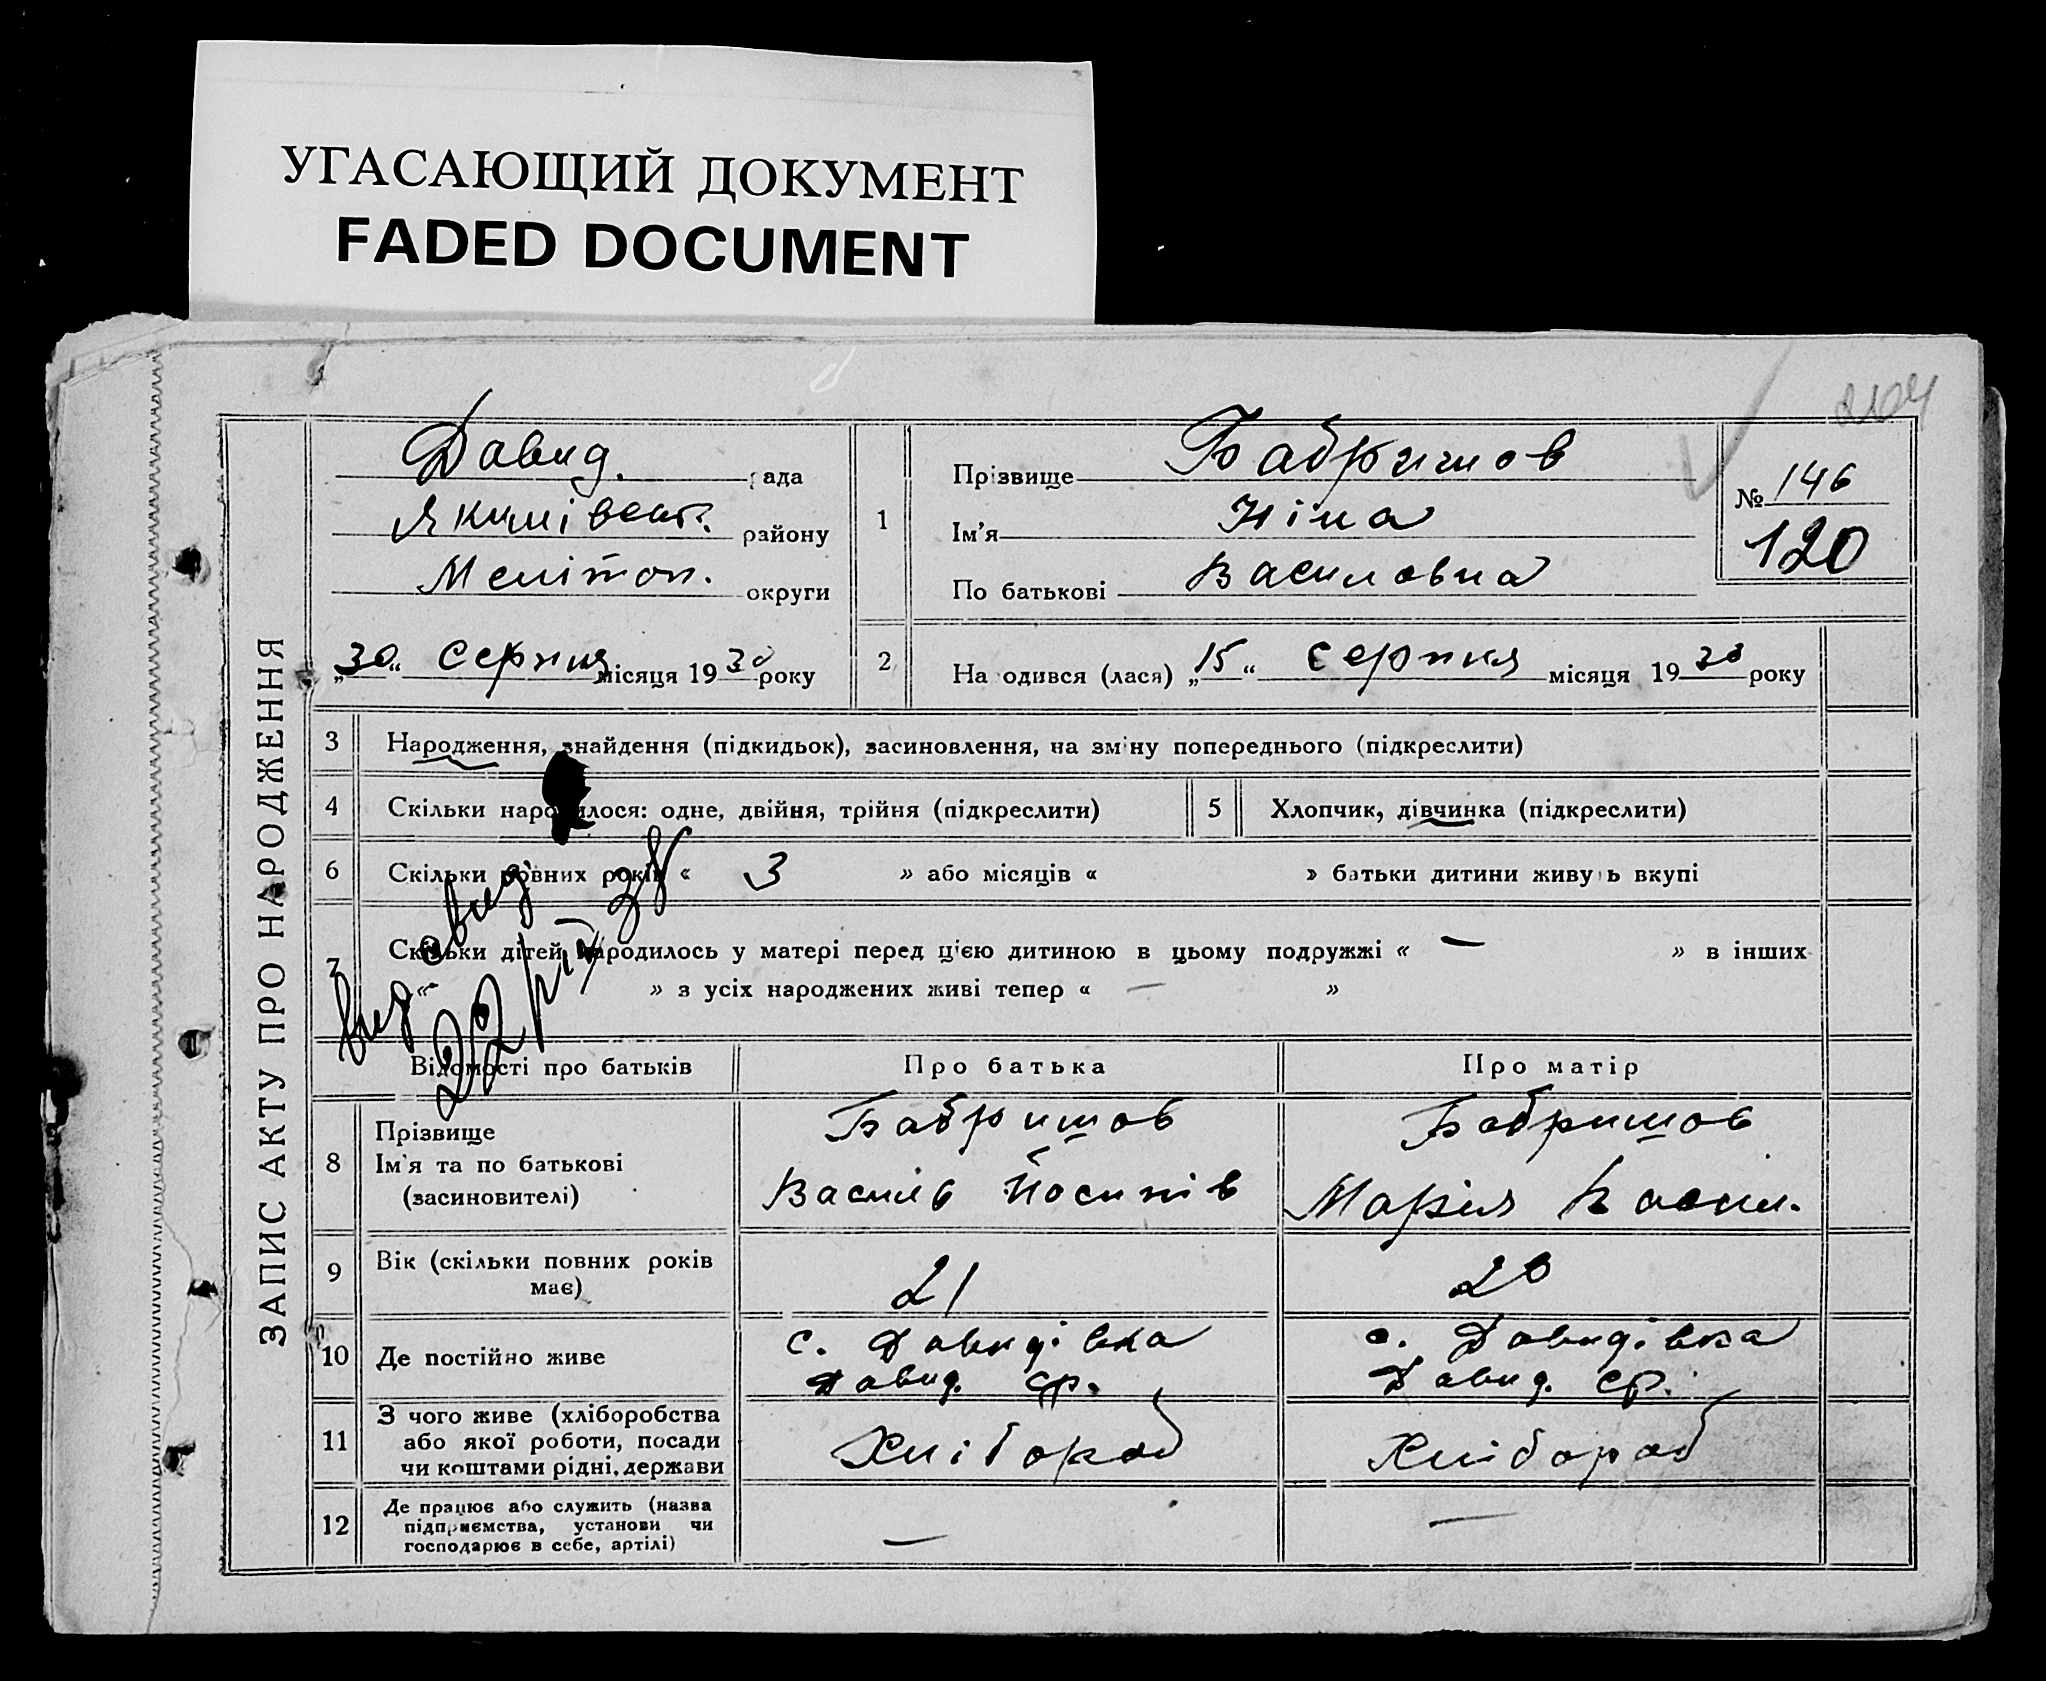 УГАСАЮЩИЙ ДОКУМЕНТ
FADED DOCUMENT
ЗАПИС АКТУ ПРО НАРОДЖЕННЯ
Давид. рада
Якимівськ. району
Мелітоп. округи
„30“ серпня місяця 1930 року
1
Прізвище Бабришов
Ім'я Ніна
По батькові Василовна
№ 146
120
2 На одився (лася) „15“ серпня місяця 1930 року
3 Народження, знайдення (підкидьок), засиновлення, на зміну попереднього (підкреслити)
4 Скільки народилося: одне, двійня, трійня (підкреслити)
5 Хлопчик, дівчинка (підкреслити)
6 Скільки повних років « 3 » або місяців « » батьки дитини живуть вкупі
7 Скільки дітей народилось у матері перед цією дитиною в цьому подружжі « — » в інших
« » з усіх народжених живі тепер « — »
Відомості про батьків Про батька Про матір
8 Прізвище
Ім'я та по батькові
(засиновителі)
Бабришов
Василь Йосипів
Бабришов
Марія Васил.
9 Вік (скільки повних років
має)
21
20
10 Де постійно живе
с. Давидівка
Давид. ср.
с. Давидівка
Давид. ср.
11 З чого живе (хліборобства
або якої роботи, посади
чи коштами рідні, держави
Хлібороб
Хлібороб
12 Де працює або служить (назва
підприємства, установи чи
господарює в себе, артілі)
—
—